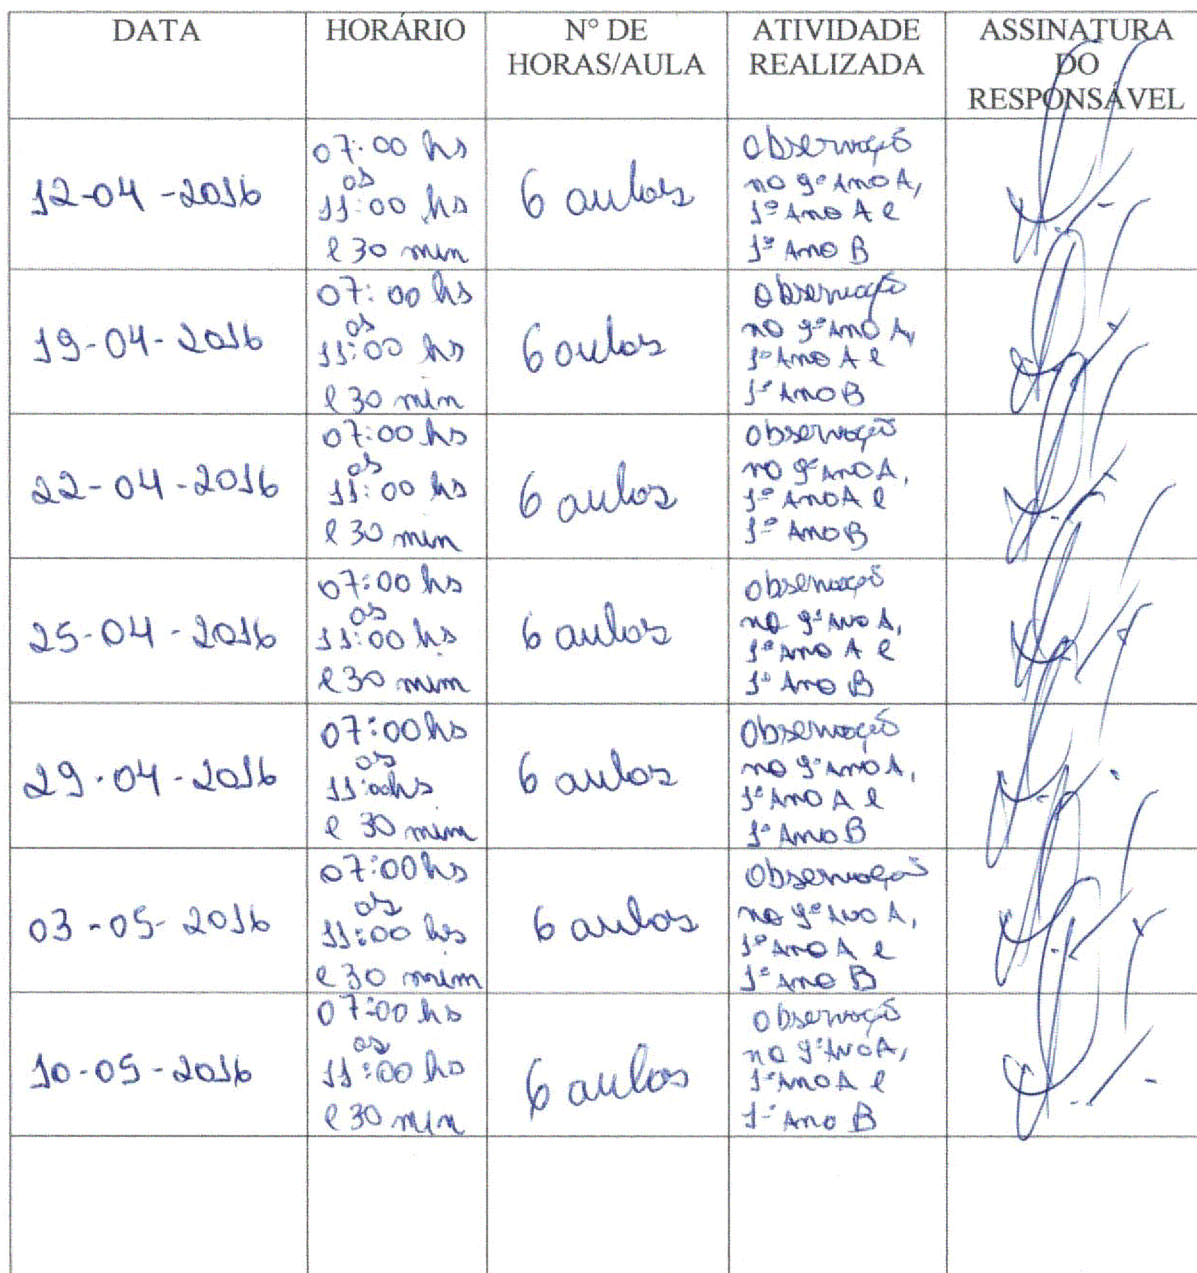 DATA
HORÁRIO
N° DE
HORAS/AULA
ATIVIDADE
REALIZADA
ASSINATURA
DO
RESPONSÁVEL
12-04-2016
07:00 hs
as
11:00 hs
e 30 min
6 aulas
Observação
no 9º Ano A,
1º Ano A e
1º Ano B
19-04-2016
07:00 hs
as
11:00 hs
e 30 min
6 aulas
Observação
no 9º Ano A,
1º Ano A e
1º Ano B
22-04-2016
07:00 hs
as
11:00 hs
e 30 min
6 aulas
Observação
no 9º Ano A,
1º Ano A e
1º Ano B
25-04-2016
07:00 hs
as
11:00 hs
e 30 mim
6 aulas
Observação
no 9º Ano A,
1º Ano A e
1º Ano B
29-04-2016
07:00 hs
as
11:00hs
e 30 mim
6 aulas
Observação
no 9º Ano A,
1º Ano A e
1º Ano B
03-05-2016
07:00 hs
as
11:00 hs
e 30 mim
6 aulas
Observação
no 9º Ano A,
1º Ano A e
1º Ano B
10-05-2016
07:00 hs
as
11:00 hs
e 30 min
6 aulas
Observação
no 9º Ano A,
1º Ano A e
1º Ano B